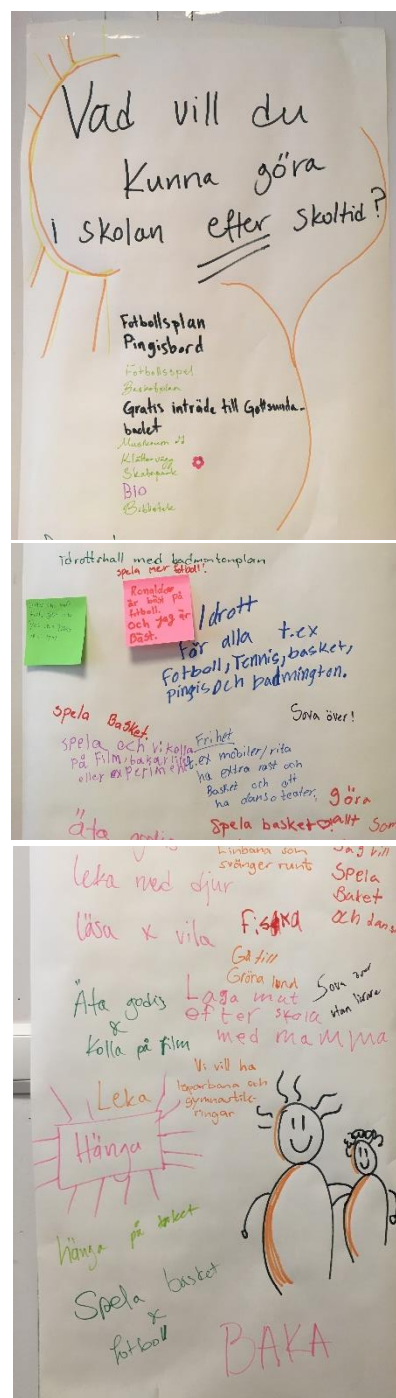 Vad vill du
kunna göra
i skolan efter skoltid?
Fotbollsplan
Pingisbord
Fotbollsspel
Basketplan
Gratis inträde till Gottsunda-
badet
Klättervägg
Skatepark
BIO
Bibliotek
idrottshall med badmontonplan
spela mer fotboll!
Ronaldo
är bäst på
fotboll.
Och jag är
Bäst.
Idrott
För alla t.ex
fotboll, Tennis, basket,
pingis Och badmington.
Sova över!
spela Basket.
spela och vi kolla
på Film, baka
eller experiment
Frihet
t.ex mobiler/rita
ha extra rast och
Basket och att
ha danso teater.
göra
allt som
Spela basket
Äta godis
Linbana som
svänger runt
Jag vill
Spela
Basket
och dans
leka med djur
läsa x vila
Fiska
Gå till
Gröna lund
Sova över
utan lärare
Laga mat
efter skola
med mamma
Äta godis
&
Kolla på film
Vi vill ha
löparbana och
gymnastik-
ringar
Leka
Hänga
hänga på taket
Spela basket
&
fotboll
BAKA